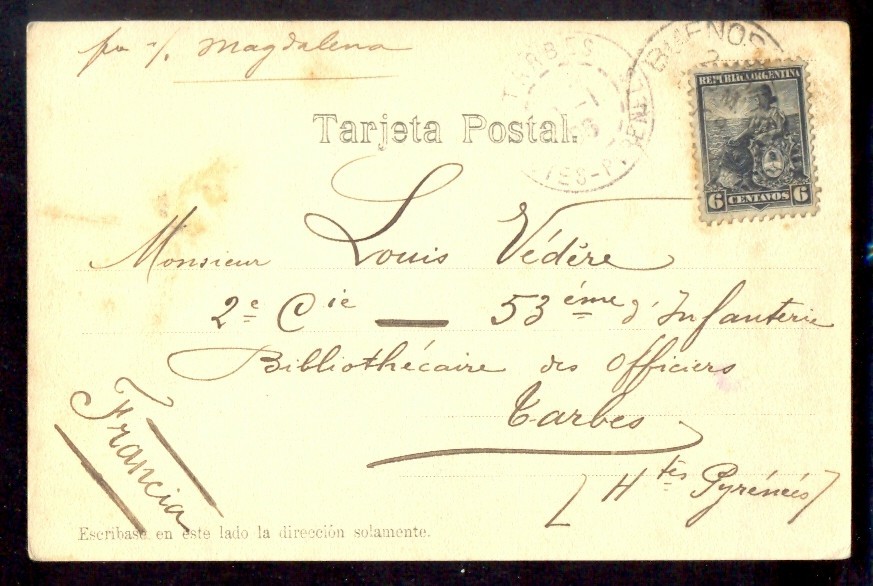 Magdalena
TARBES
BUENOS
REPUBLICA ARGENTINA
6 CENTAVOS 6
Tarjeta Postal.
Monsieur Louis Védère
2e Cie — 53ème d'Infanterie
Bibliothécaire des Officiers
Tarbes
[Htes Pyrénées]
Francia
Escribase en este lado la dirección solamente.